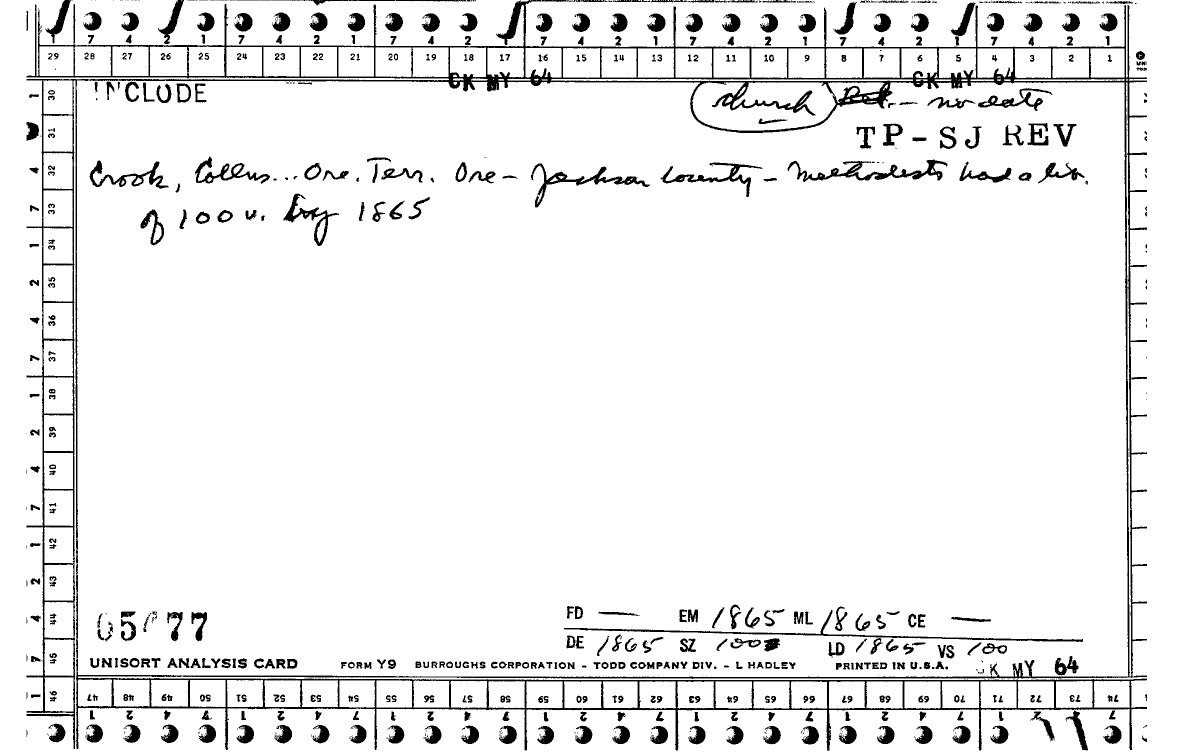 7 4 2 1 7 4 2 1 7 4 2 1 7 4 2 1 7 4 2 1 7 4 2 1 7 4 2 1
29 28 27 26 25 24 23 22 21 20 19 18 17 16 15 14 13 12 11 10 9 8 7 6 5 4 3 2 1
CK MY 64 CK MY 64
INCLUDE
church Rel. — no date
TP-SJ REV
Crook, Collins... Ore. Terr. Ore - Jackson County - Methodists had a lib.
of 100 v. by 1865
1 30
31
4 32
7 33
1 34
2 35
4 36
7 37
1 38
2 39
4 40
7 41
1 42
2 43
4 44
7 45
1 46
05 77
FD — EM 1865 ML 1865 CE —
DE 1865 SZ 100 LD 1865 VS 100
UNISORT ANALYSIS CARD FORM Y9 BURROUGHS CORPORATION - TODD COMPANY DIV. - L HADLEY PRINTED IN U.S.A.
CK MY 64
47 48 49 50 51 52 53 54 55 56 57 58 59 60 61 62 63 64 65 66 67 68 69 70 71 72 73 74
1 2 4 7 1 2 4 7 1 2 4 7 1 2 4 7 1 2 4 7 1 2 4 7 1 2 7